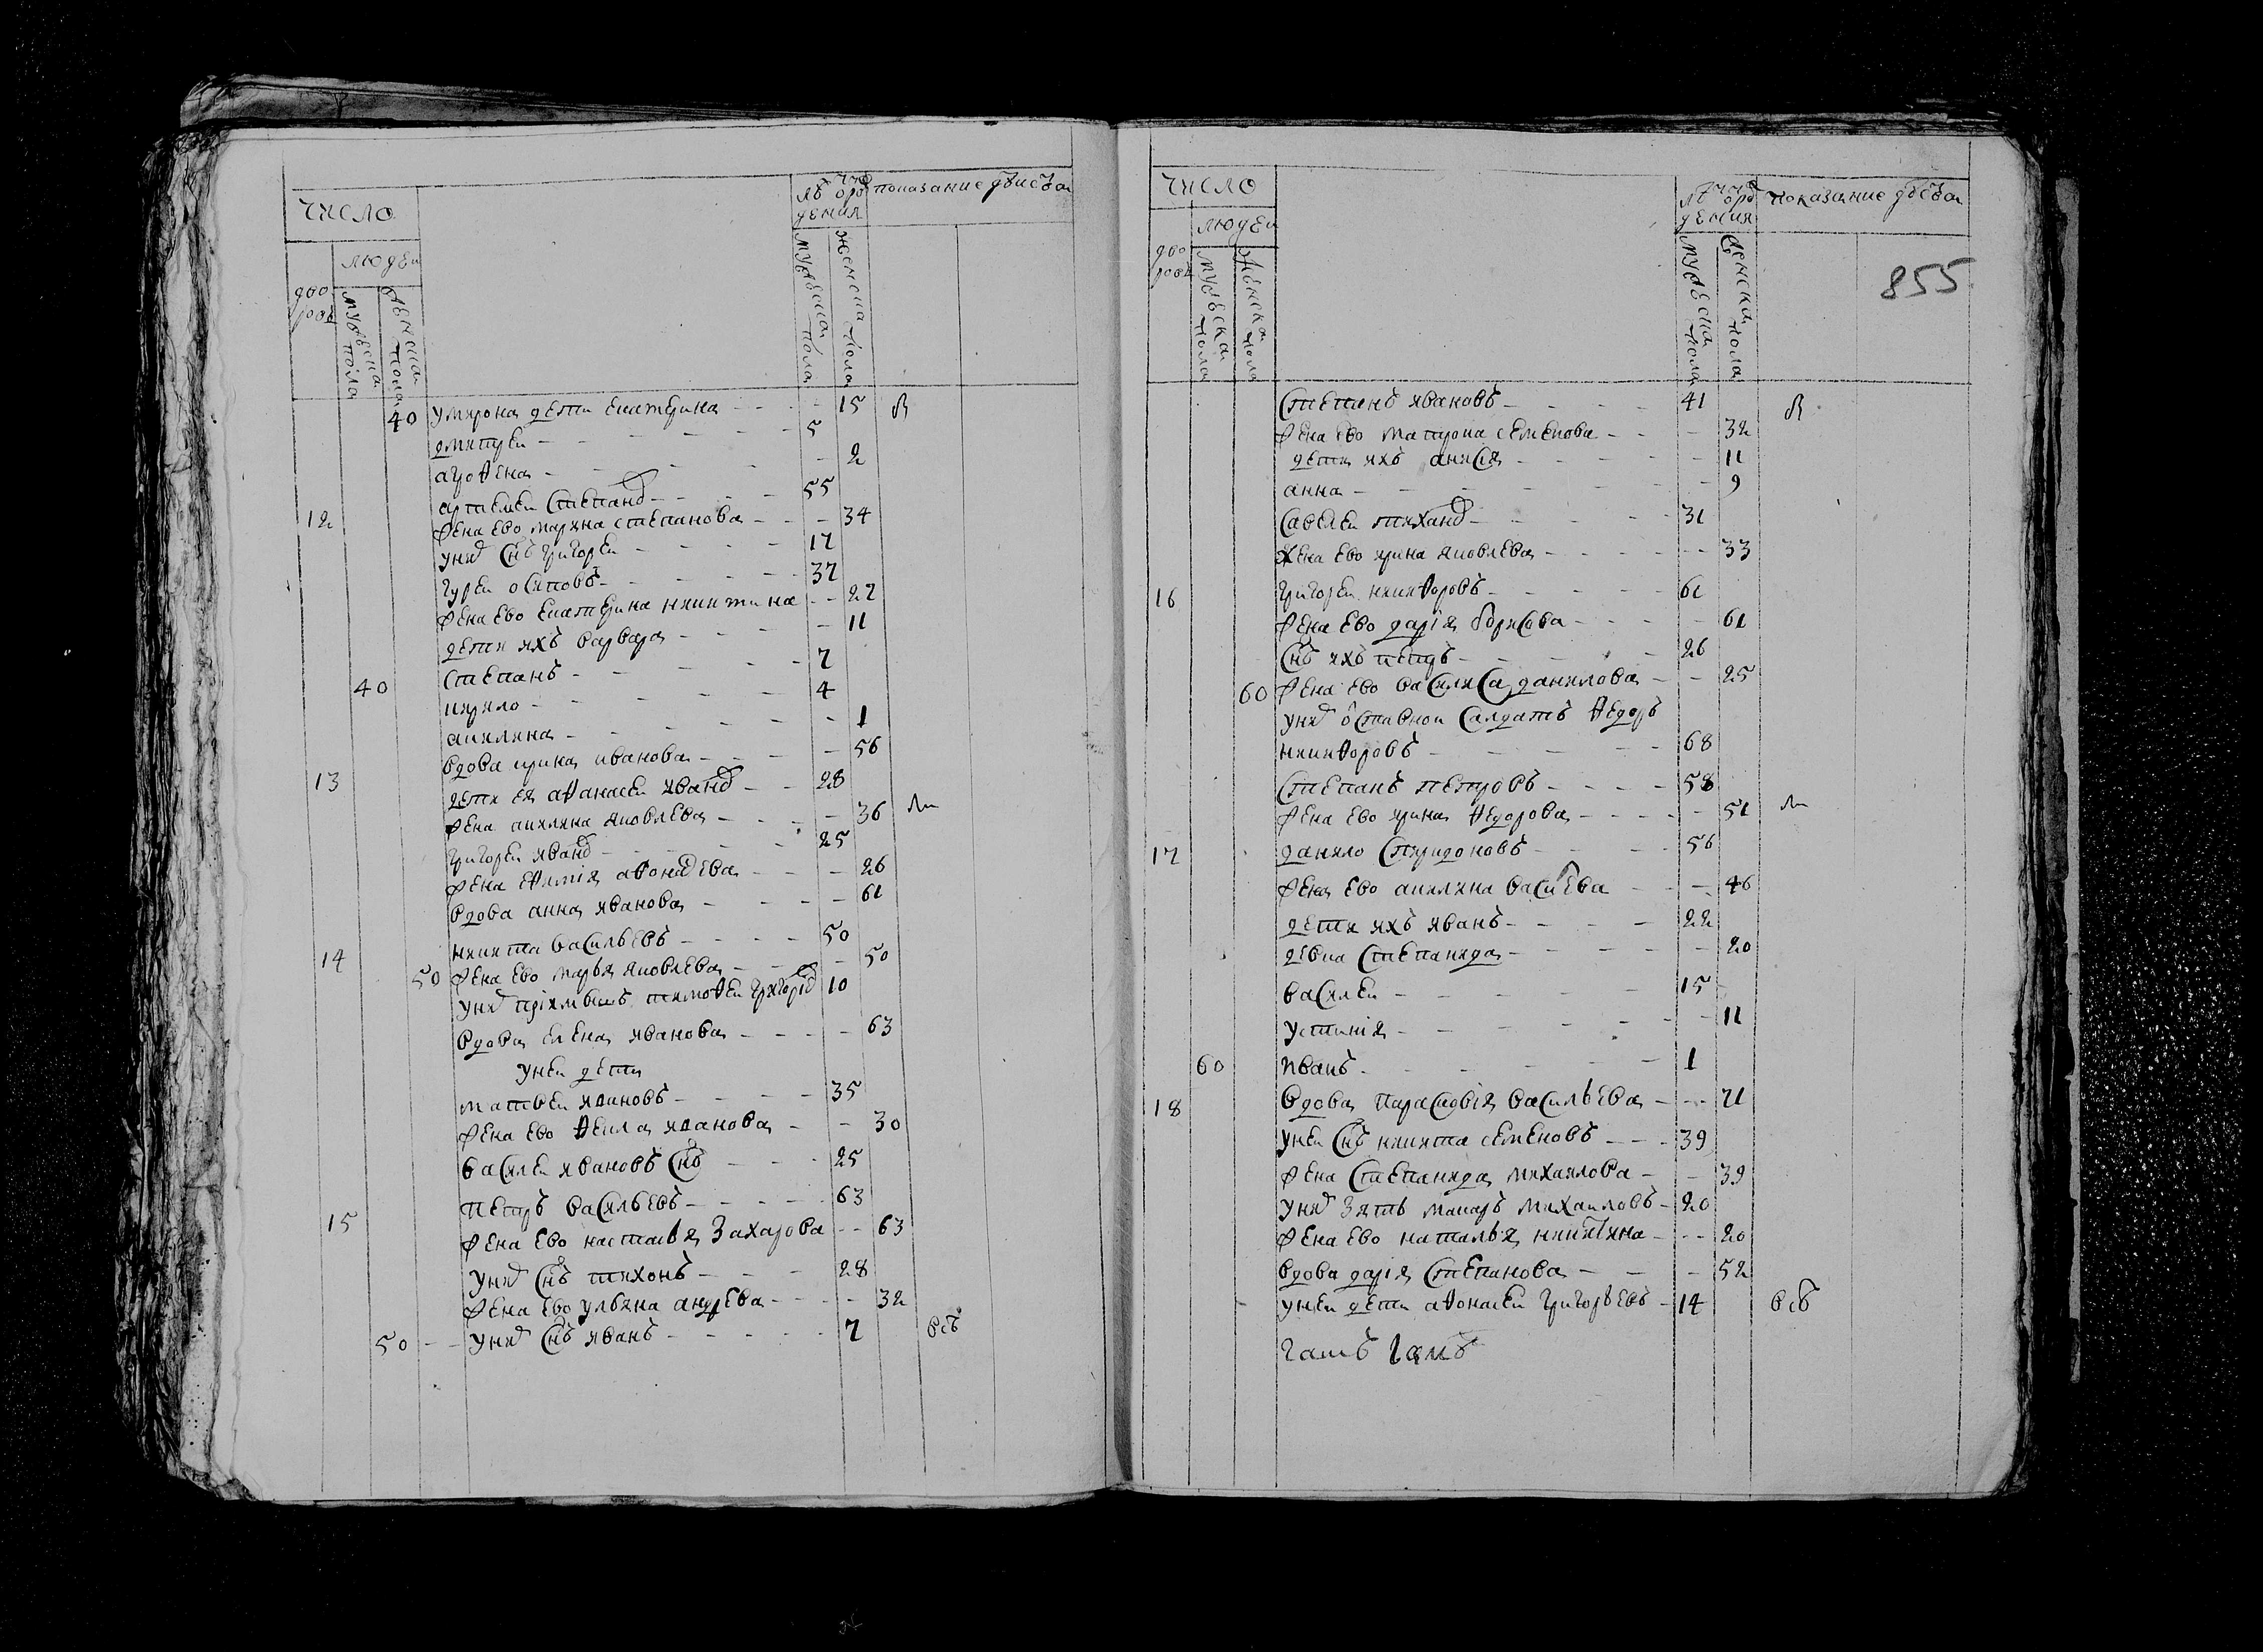 число
людеи
дво
ровъ
мужеска пола
женска пола
лѣтъ отрождения
мужеска пола
женска пола
показание дѣиства
40 умирона дети екатерина - - - 15 в
дмитреи - - - 5
агрофена - - - 2
артемеи степанов - - - 55
12 жена ево марина степанова - - - 34
унихъ снъ григореи - - - 17
гуреи осиповъ - - - 37
жена ево екатерина никитина - - 27
дети ихъ варвара - - - 11
степанъ - - - 7
40 кирило - - - 4
акилина - - - 1
вдова ирина иванова - - - 56
13 дети ея афанасеи иванов - - 28
жена акилина яковлева - - - 36 ли
григореи иванов - - - 25
жена ефимия афонасева - - - 26
вдова анна иванова - - - 61
14 никита васильевъ - - - 50
50 жена ево марья яковлева - - - 50
унихъ приимышъ тимофеи григорев 10
вдова елена иванова - - - 63
унеи дети
матвеи ивановъ - - - 35
жена ево фекла иванова - - 30
василеи ивановъ снъ - - - 25
петръ васильевъ - - - 63
15 жена ево настасья захарова - - 63
унихъ снъ тихонъ - - - 28
жена ево ульяна андрева - - - 32
50 - - унихъ снъ иванъ - - - 7 всѣ
число
людеи
дво
ровъ
мужеска пола
женска пола
лѣтъ отрождения
мужеска пола
женска пола
показание дѣиства
855
степанъ ивановъ - - - 41 в
жена ево матрона семенова - - - 32
дети ихъ анисия - - - 11
анна - - - 9
савелеи тиханов - - - 31
жена ево ирина яковлева - - - 33
16 григореи никифоровъ - - - 61
жена ево дария борисова - - - 61
снъ ихъ петръ - - - 26
60 жена ево василиса данилова - - 25
унихъ отставнои салдатъ федоръ
никифоровъ - - - 68
степанъ петровъ - - - 58
жена ево ирина федорова - - - 51 ли
17 данило спиридоновъ - - - 56
жена ево акилина василева - - - 46
дети ихъ иванъ - - - 22
девка степанида - - - 20
василеи - - - 15
устиния - - - 11
60 иванъ - - - 1
18 вдова парасковия васильева - - - 71
унеи снъ никита семеновъ - - - 39
жена степанида михаилова - - 39
унихъ зять макаръ михаиловъ - 20
жена ево наталья никитина - - - 20
вдова дария степанова - - - 52
унеи дети афонасеи григорьевъ - 14 всѣ